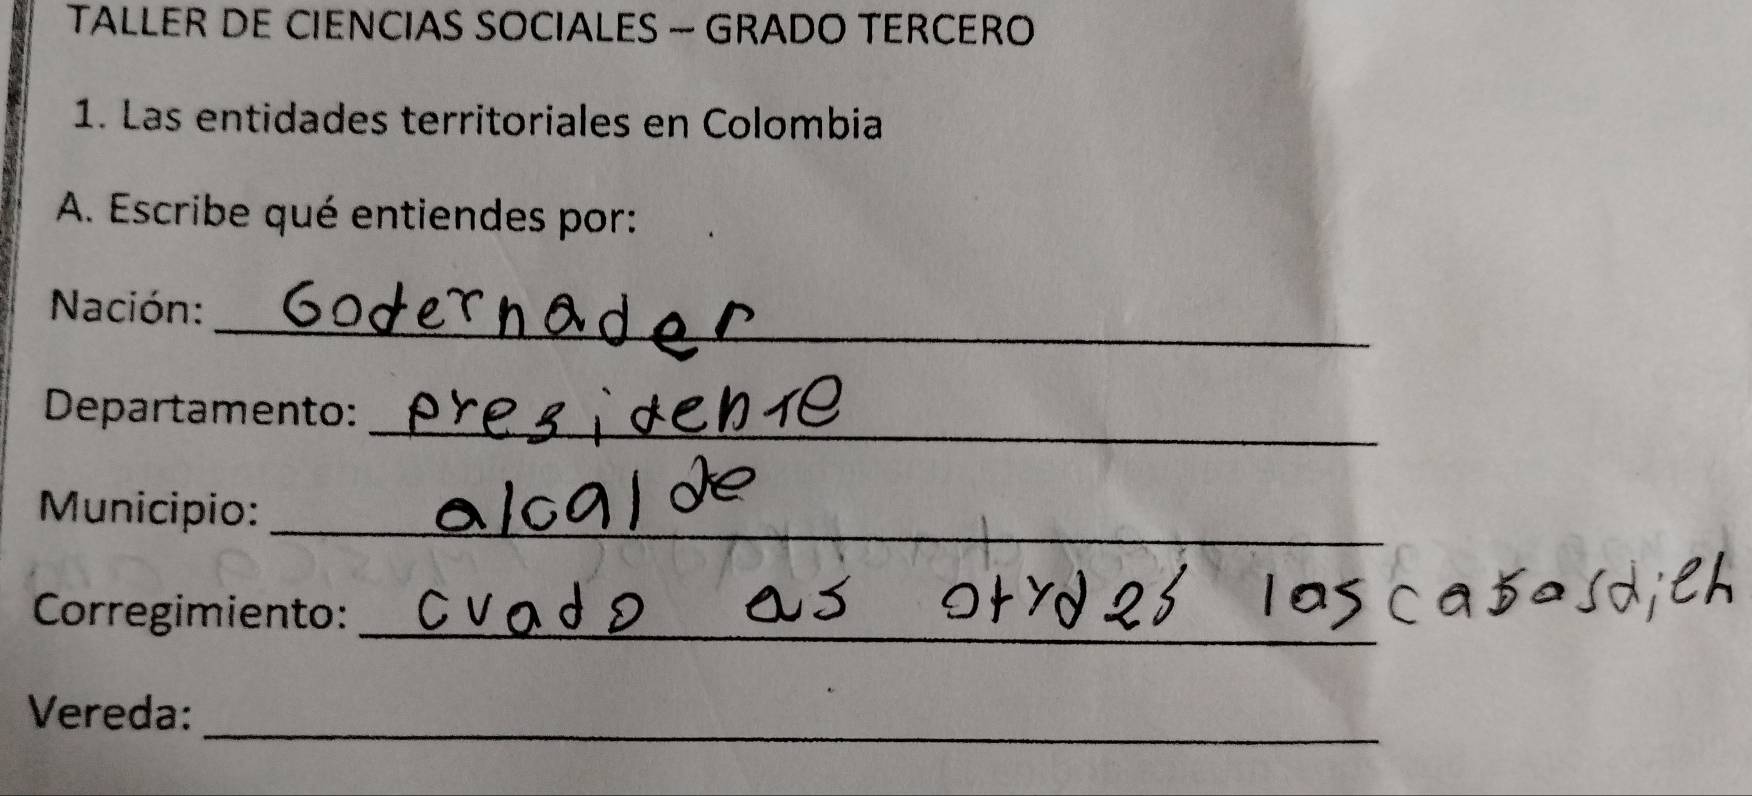 TALLER DE CIENCIAS SOCIALES - GRADO TERCERO
1. Las entidades territoriales en Colombia
A. Escribe qué entiendes por:
Nación: Godernader
Departamento: presidente
Municipio: alcalde
Corregimiento: cvado as las casas
Vereda: